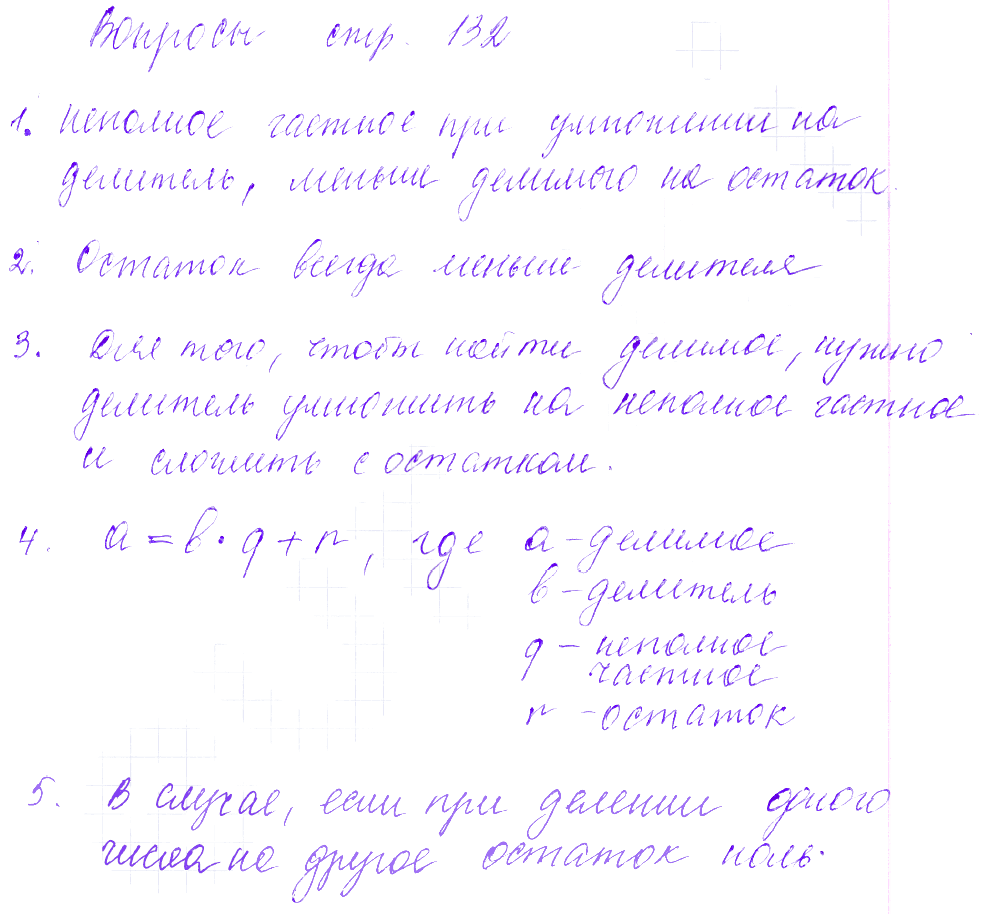 Вопросы стр. 132
1. неполное частное при умножении на
делитель, меньше делимого на остаток.
2. Остаток всегда меньше делителя
3. Для того, чтобы найти делимое, нужно
делитель умножить на неполное частное
и сложить с остатком.
4. a = b · q + r, где a - делимое
b - делитель
q - неполное
частное
r - остаток
5. В случае, если при делении одного
числа на другое остаток ноль.